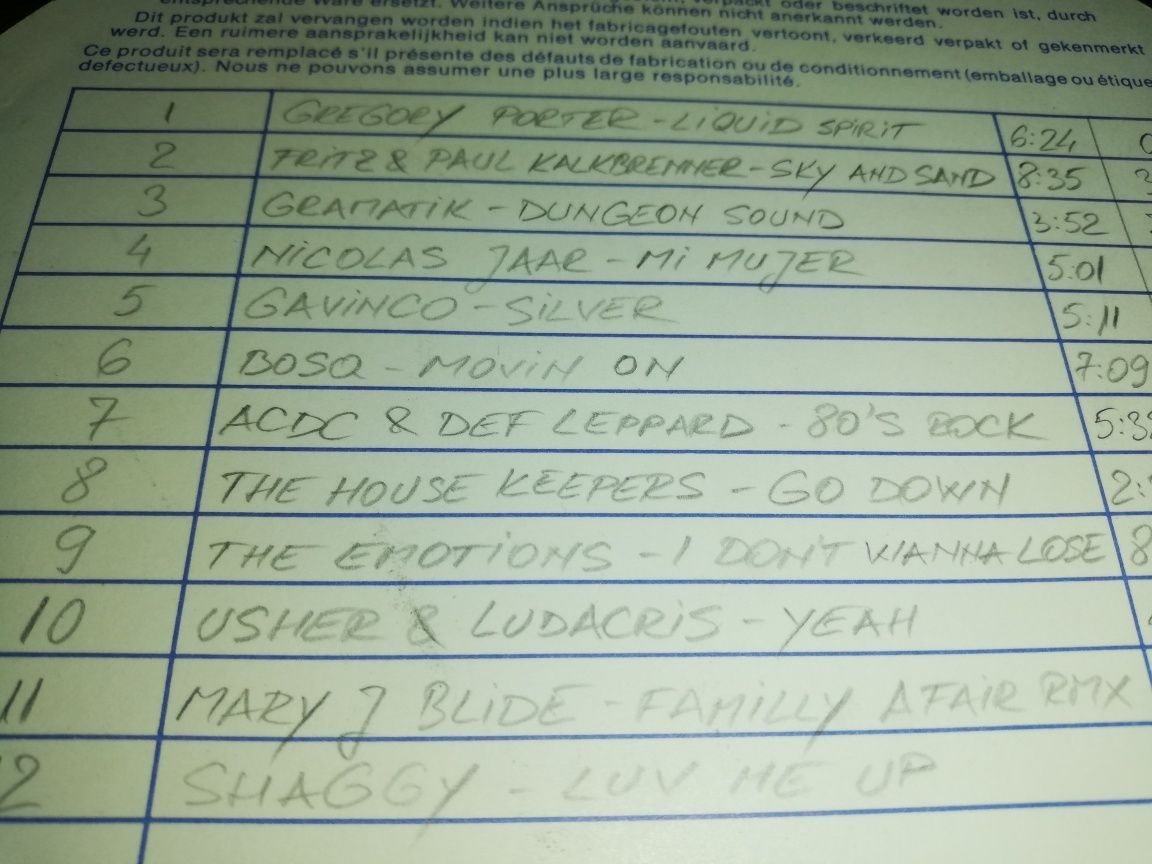 entsprechende Ware ersetzt. Weitere Ansprüche können nicht anerkannt werden.
verpackt oder beschriftet worden ist, durch
Dit produkt zal vervangen worden indien het fabricagefouten vertoont, verkeerd verpakt of gekenmerkt
werd. Een ruimere aansprakelijkheid kan niet worden aanvaard.
Ce produit sera remplacé s'il présente des défauts de fabrication ou de conditionnement (emballage ou étique
defectueux). Nous ne pouvons assumer une plus large responsabilité.
1 GREGORY PORTER - LIQUID SPIRIT 6:24
2 FRITZ & PAUL KALKBRENNER - SKY AND SAND 8:35
3 GRAMATIK - DUNGEON SOUND 3:52
4 NICOLAS JAAR - MI MUJER 5:01
5 GAVINCO - SILVER 5:11
6 BOSQ - MOVIN ON 7:09
7 ACDC & DEF LEPPARD - 80'S ROCK 5:3
8 THE HOUSE KEEPERS - GO DOWN 2:
9 THE EMOTIONS - I DON'T WANNA LOSE 8
10 USHER & LUDACRIS - YEAH
11 MARY J BLIDE - FAMILLY AFAIR RMX
2 SHAGGY - LUV ME UP